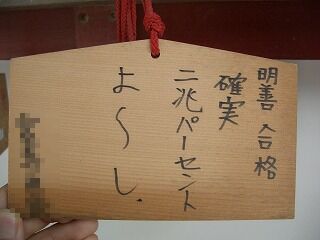 明善 合格
確実
二兆パーセント
よ〜し.